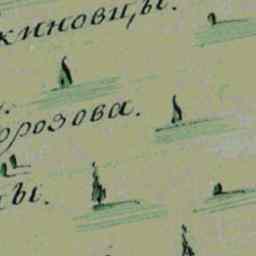 киновцы.
орозова.
цы.